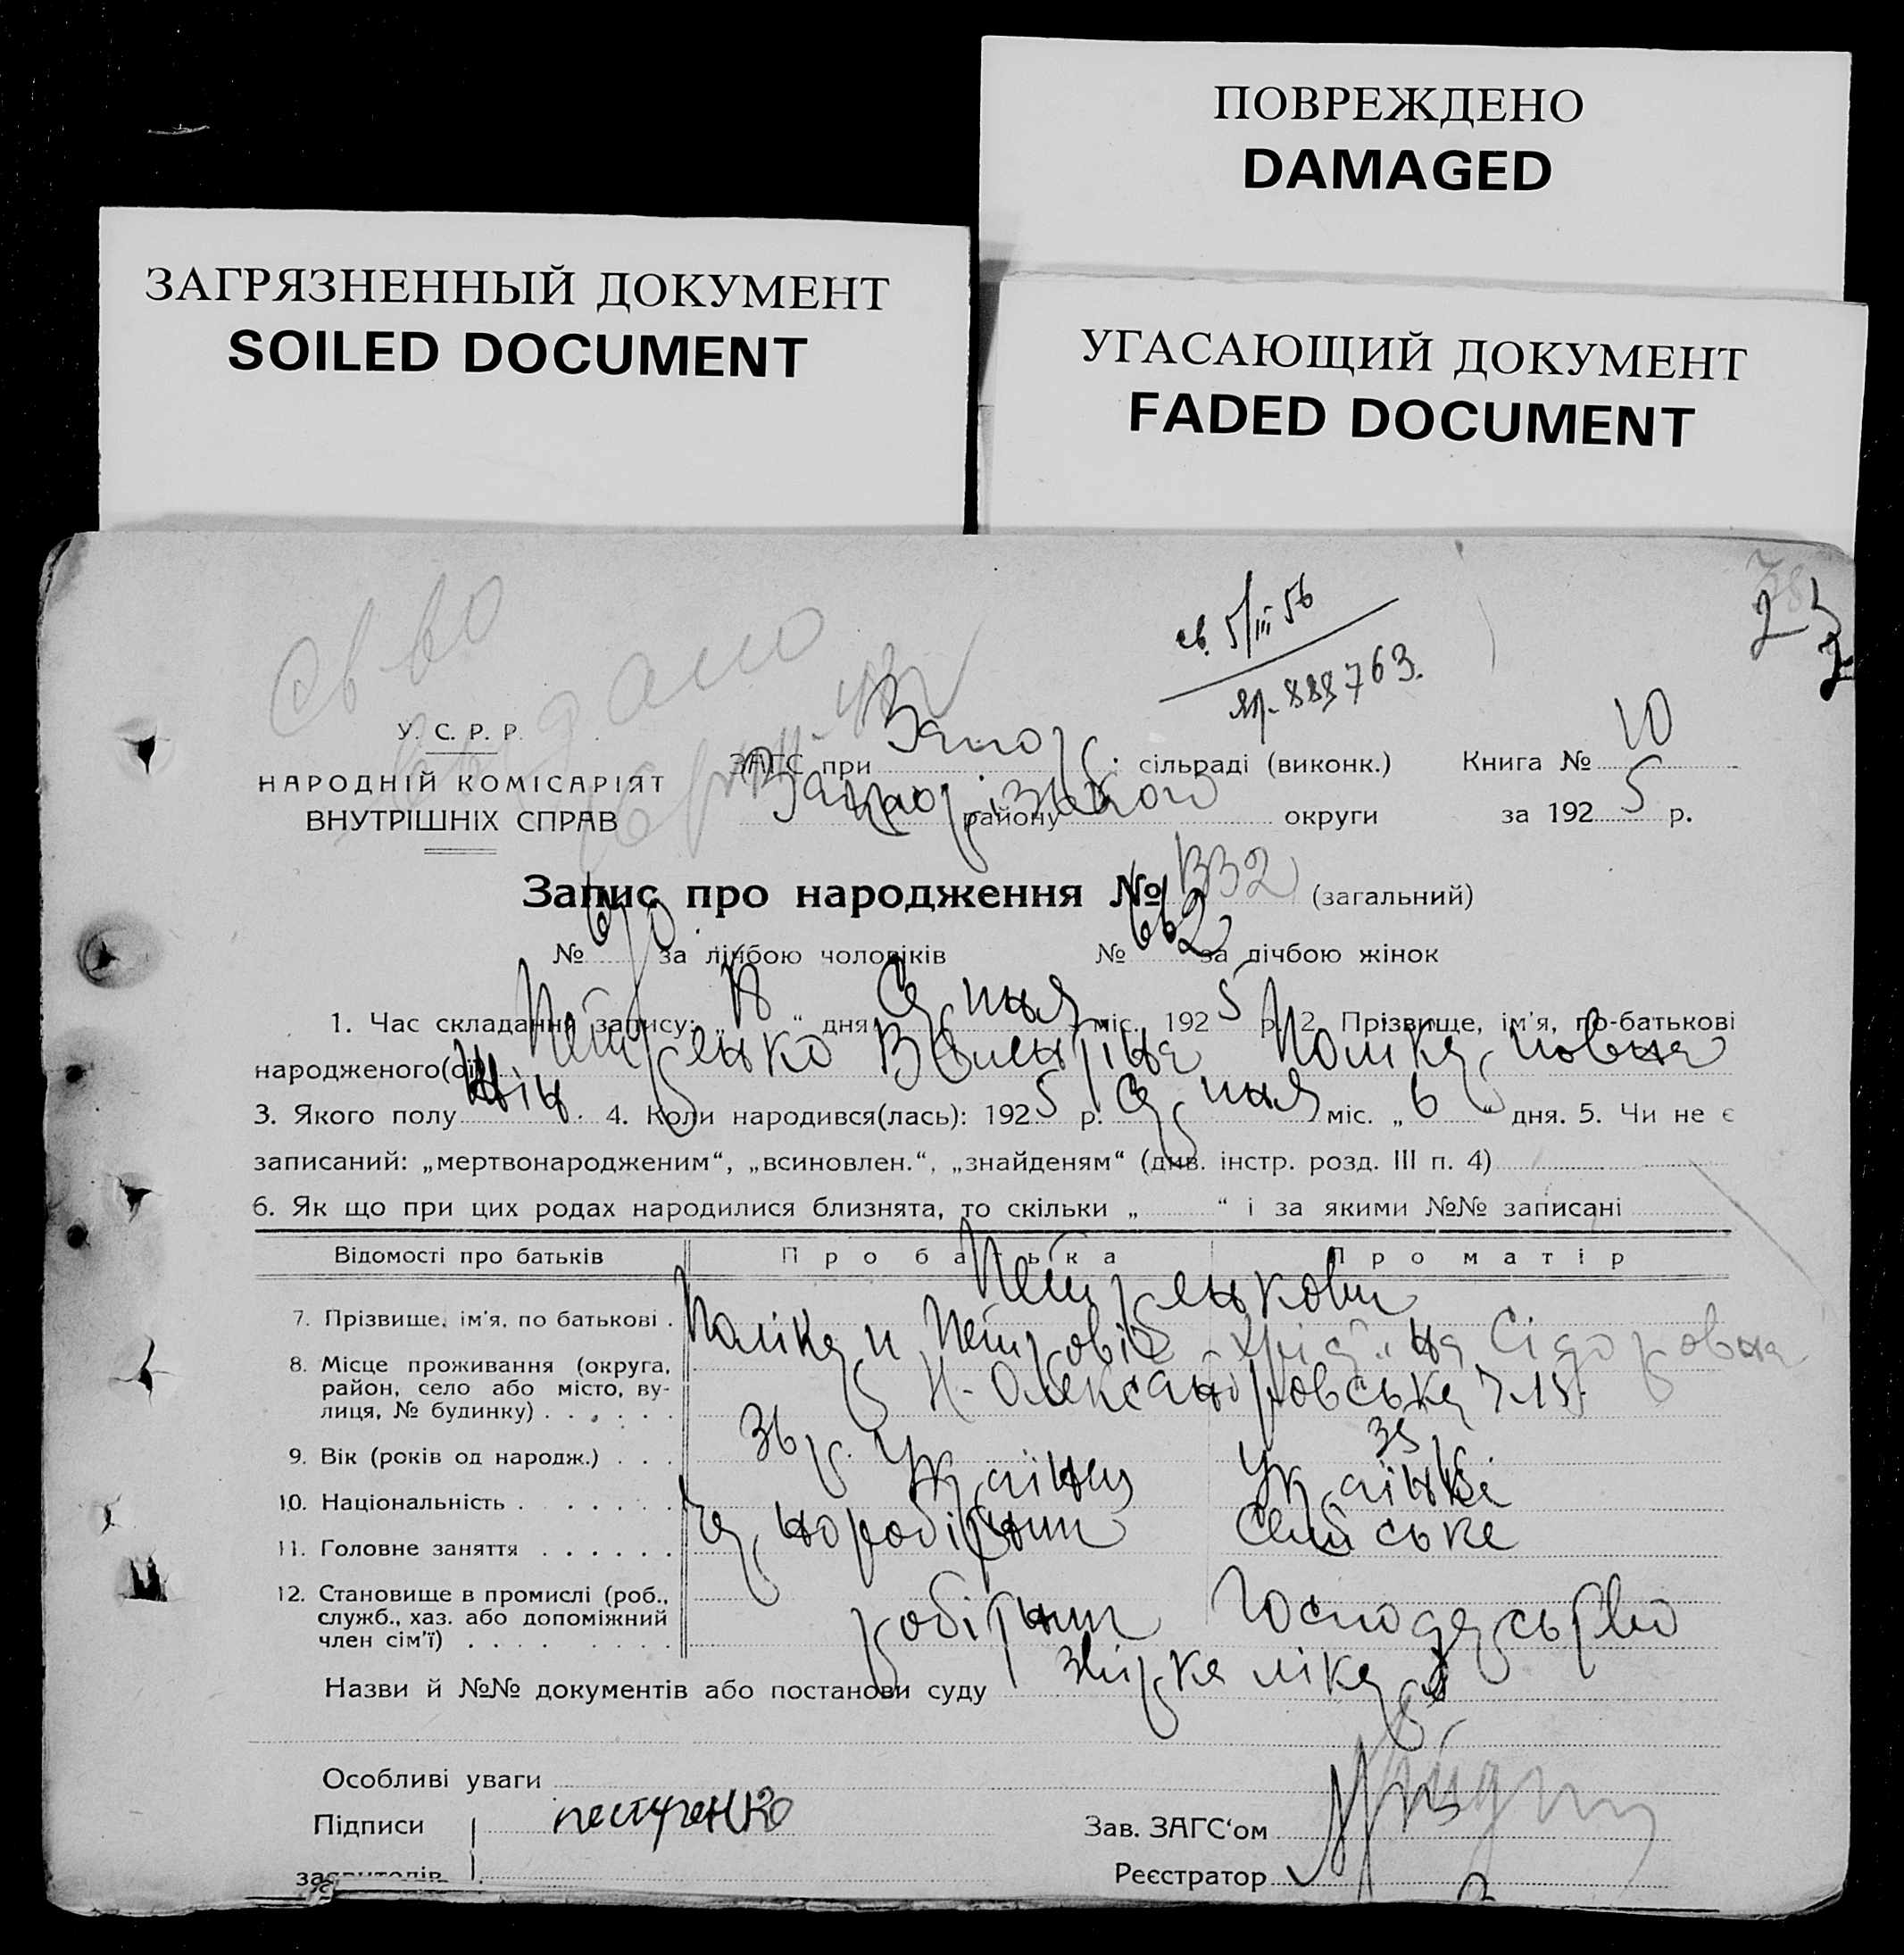 ПОВРЕЖДЕНО
DAMAGED
ЗАГРЯЗНЕННЫЙ ДОКУМЕНТ
SOILED DOCUMENT
УГАСАЮЩИЙ ДОКУМЕНТ
FADED DOCUMENT
св. 5/III 56
888763.
23
У. С. Р. Р.
НАРОДНІЙ КОМІСАРІЯТ
ВНУТРІШНІХ СПРАВ
ЗАГС при Запор. сільраді (виконк.) Книга № 10
Запорізького району округи за 1925 р.
Запис про народження № 1332 (загальний)
№ 670 за лічбою чоловіків № 662 за лічбою жінок
1. Час складання запису: „18“ дня Серпня міс. 1925 р. 2. Прізвище, ім'я, по-батькові
народженого(ої) Петренко Валентіна Полікарповна
3. Якого полу жін. 4. Коли народився(лась): 1925 р. Серпня міс. „6“ дня. 5. Чи не є
записаний: „мертвонародженим“, „всиновлен.“, „знайденям“ (див. інстр. розд. III п. 4)
6. Як що при цих родах народилися близнята, то скільки „ “ і за якими №№ записані
Відомості про батьків Про батька Про матір
Петренкови
7. Прізвище, ім'я, по батькові . Полікарп Петровіч Сідоровна
8. Місце проживання (округа, район, село або місто, вулиця, № будинку) . . . . . . Н-Олександровська
9. Вік (років од народж.) . . . 36 р. 35 р.
10. Національність . . . . . . Українець Українка
11. Головне заняття . . . . . . чорноробітник сельське
12. Становище в промислі (роб., служб., хаз. або допоміжний член сім'ї) . . . . . . . . робітник господарство
Назви й №№ документів або постанови суду лікаря
Особливі уваги
Підписи петренко Зав. ЗАГС'ом
заявителів Реєстратор